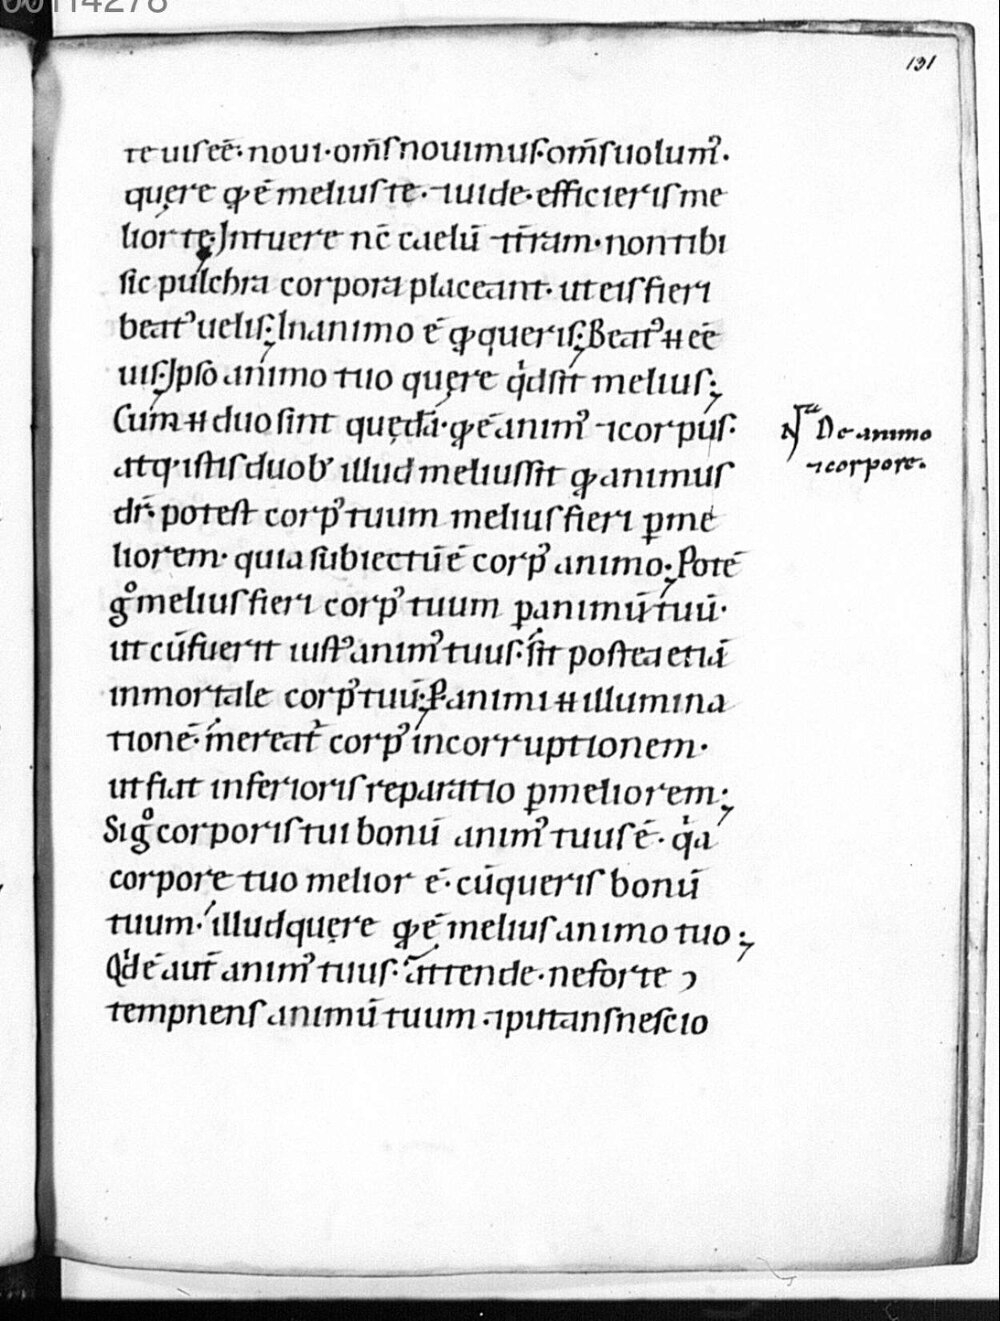 00114278
131
te uis eē· noui· om̄s nouimus· om̄s uolumꝰ·
quęre ꝙ ē melius te· ⁊ uide· efficieris me
lior te; Intuere nc̄ caelū ⁊ tr̄am· non tibi
sic pulchra corpora placeant· ut eis fieri
beatꝰ uelis; In animo ē ꝙ queris; Beatꝰ n̄ eē
uis; Ipso animo tuo quęre qd̓ sit melius;
Cum n̄ duo sint quędā· ꝙ ē animꝰ ⁊ corpus·
atq; istis duobꝰ illud melius sit ꝙ animus
dr̄· potest corpꝰ tuum melius fieri ꝑ me
liorem· quia subiectū ē corpꝰ animo; Potē
gͦ melius fieri corpꝰ tuum ꝑ animū tuū·
ut cū fuerit iustꝰ animꝰ tuus· sit postea etiā
inmortale corpꝰ tuū; Ꝑ animi n̄ illumina
tionē· mereat̄ corpꝰ incorruptionem·
ut fiat inferioris reparatio ꝑ meliorem;
Si gͦ corporis tui bonū animꝰ tuus ē· qͥa
corpore tuo melior ē· cū queris bonū
tuum· illud quęre ꝙ ē melius animo tuo;
Qd̓ ē aut̄ animꝰ tuus· attende· ne forte ꝯ
tempnens animū tuum ⁊ putans nescio
De animo
⁊ corpore.